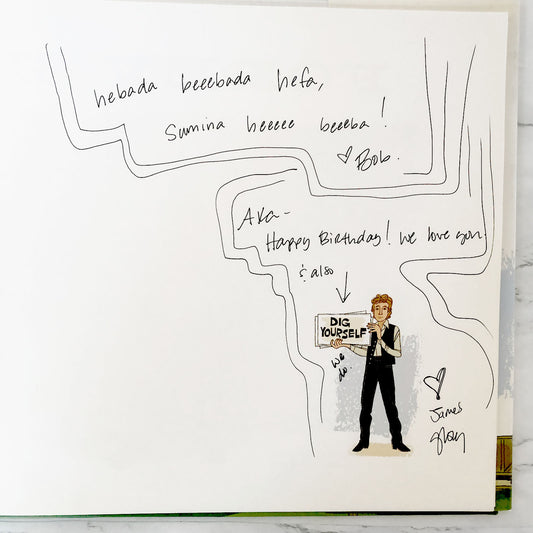 hebada beeebada hefa,
Sumina heeeee beeeba!
Bob.
AKA-
Happy Birthday! We love you.
& also
DIG
YOURSELF
we
do.
James